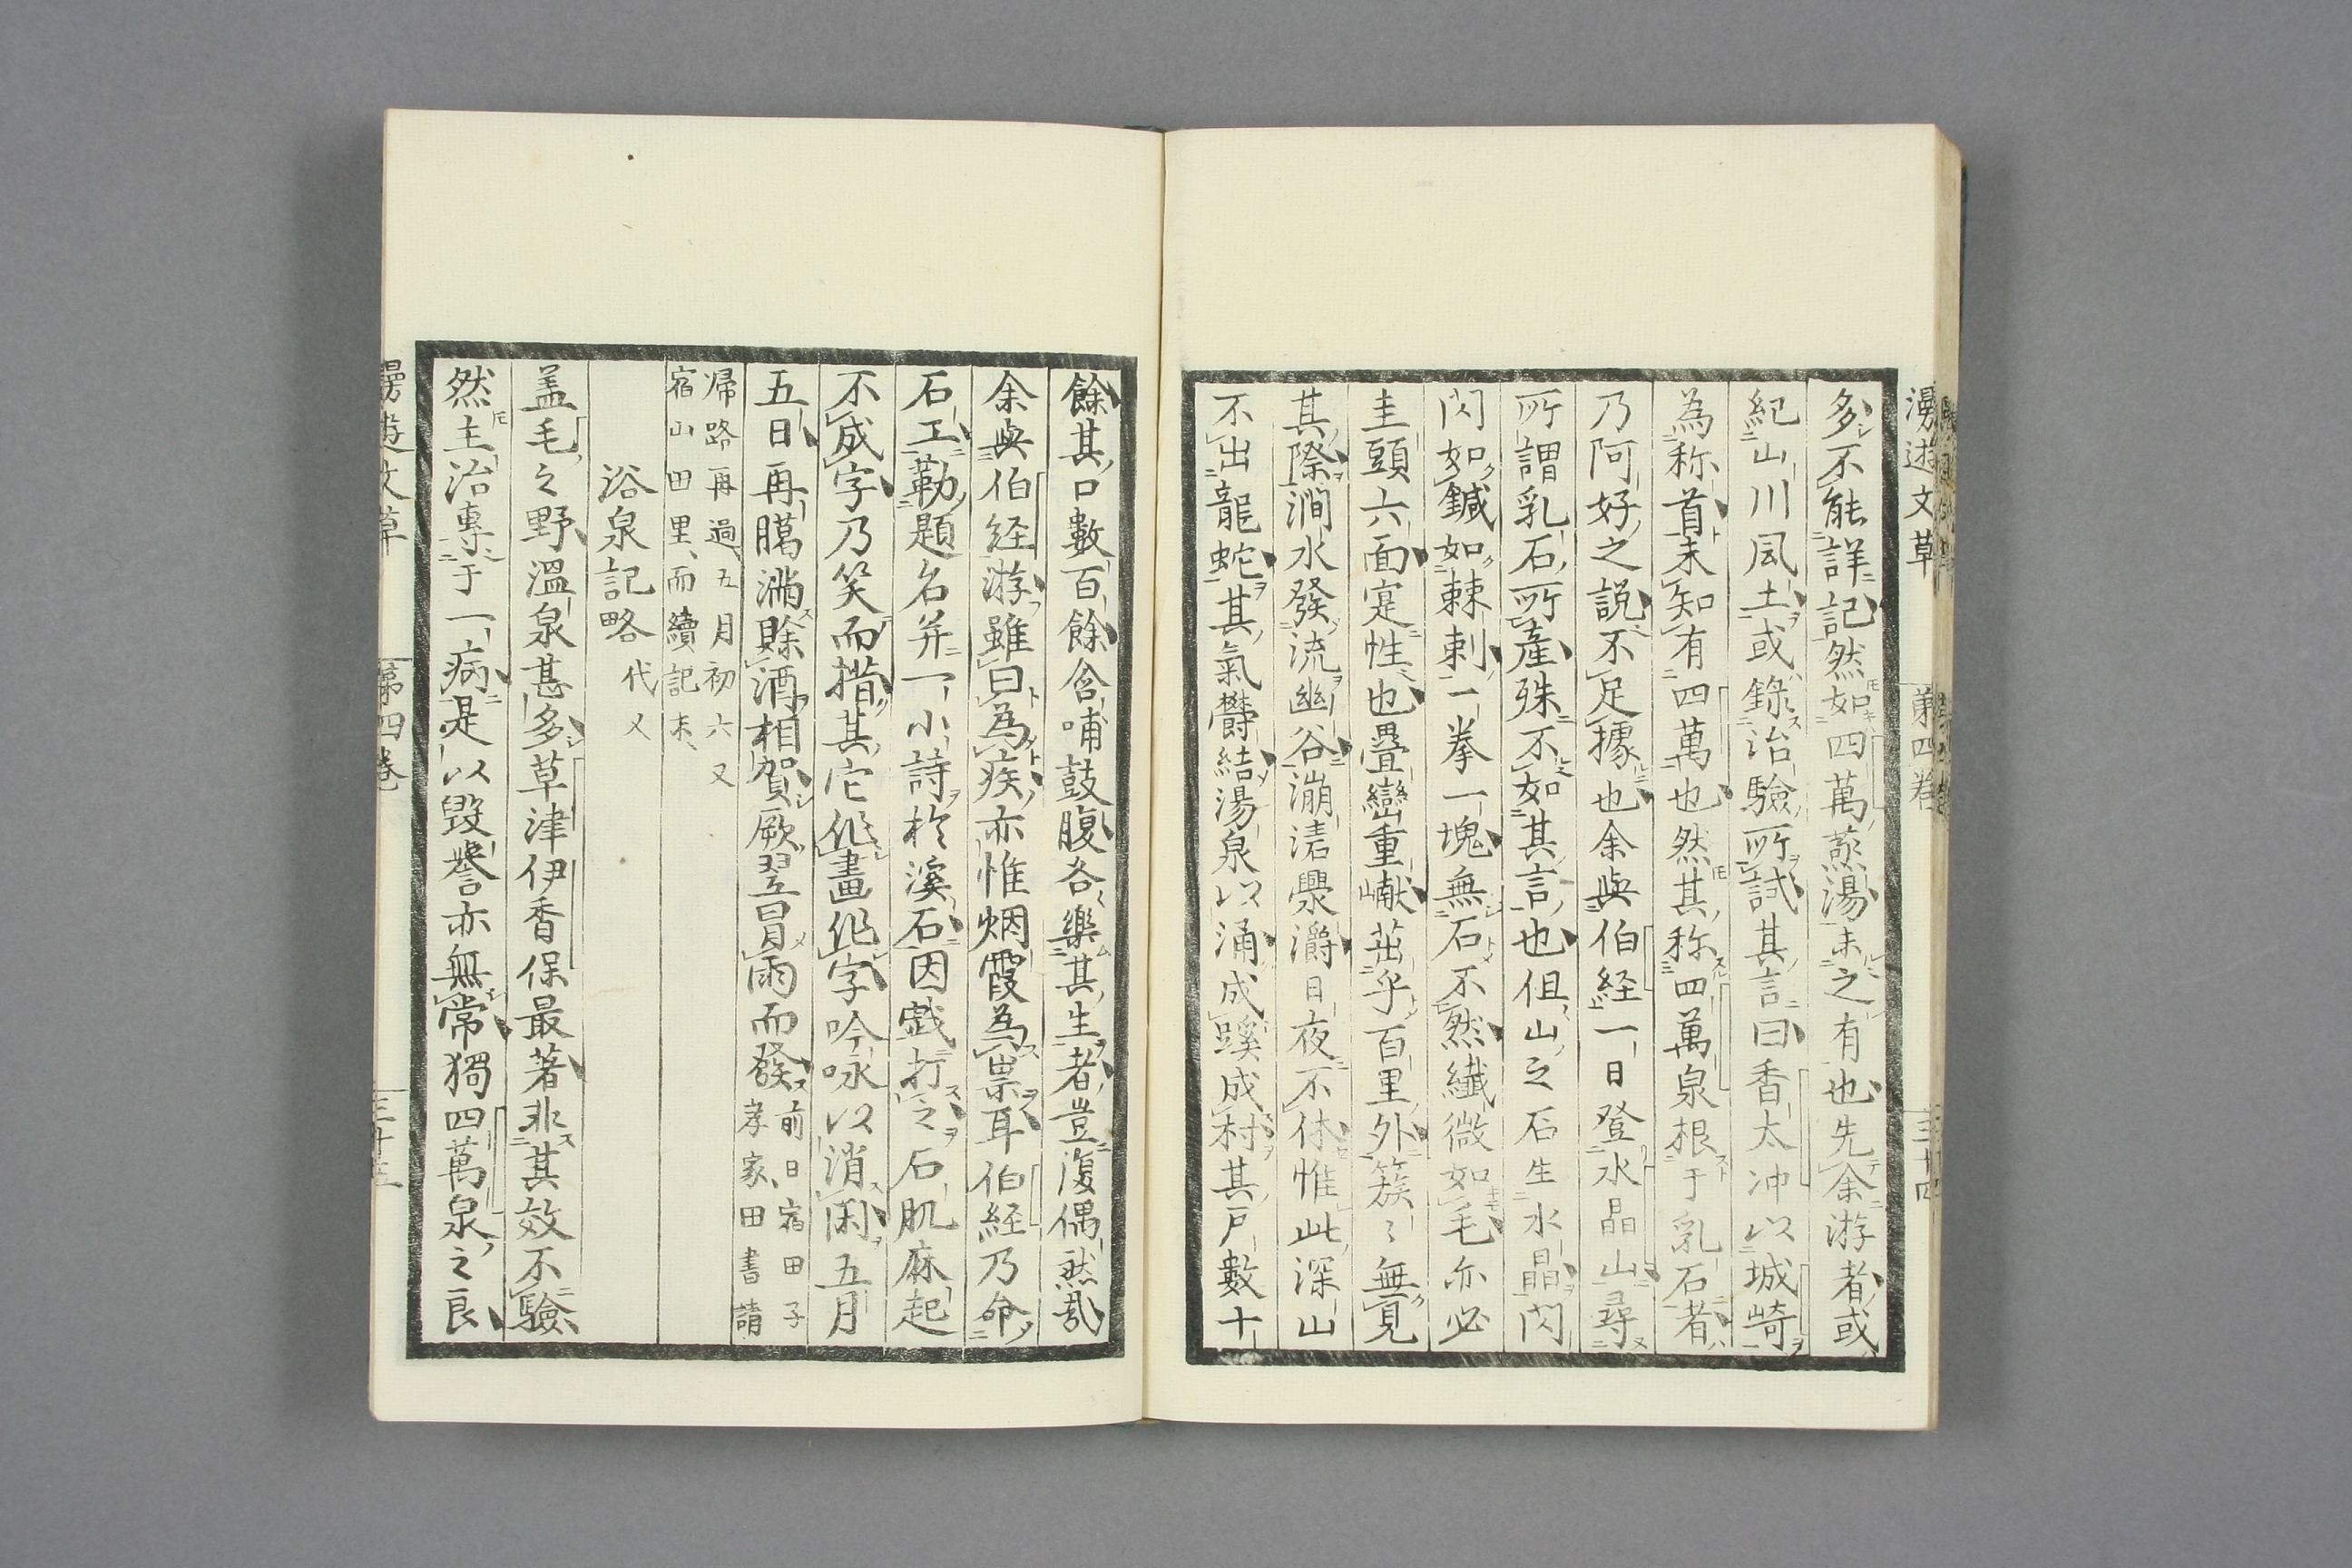 漫遊文草 第四卷 三十四
多不能詳記然如四萬蒸湯未之有也先余游者或
紀山川風土或錄治驗所試其言曰香太冲以城崎
為称首未知有四萬也然其称四萬泉根于乳石者
乃阿好之説不足據也余與伯経一日登水晶山尋
所謂乳石所產殊不如其言也但山之石生水晶閃
閃如鍼如棘刺一拳一塊無石不然纖微如毛亦必
圭頭六面寔性也疊巒重巘茁乎百里外簇々無覓
其際澗水發流幽谷漰渃㶅灂日夜不休惟此深山
不出龍蛇其氣欝結湯泉以涌成蹊成村其戶數十
餘其口數百餘含哺鼓腹各樂其生者豈復偶然哉
余與伯経游雖曰為疾亦惟烟霞為祟耳伯経乃命
石工勒題名并一小詩於溪石因戲打之石肌麻起
不成字乃笑而措其它作畫作字吟咏以消閑五月
五日再臈滿賖酒相賀厥翌冒雨而發 前日宿田子
孝家田書請
帰路再過五月初六又
宿山田里而續記末
浴泉記略 代人
盖毛之野溫泉甚多草津伊香保最著非其效不驗
然主治專于一病是以毀譽亦無常獨四萬泉之良
漫遊文草 第四卷 三十五